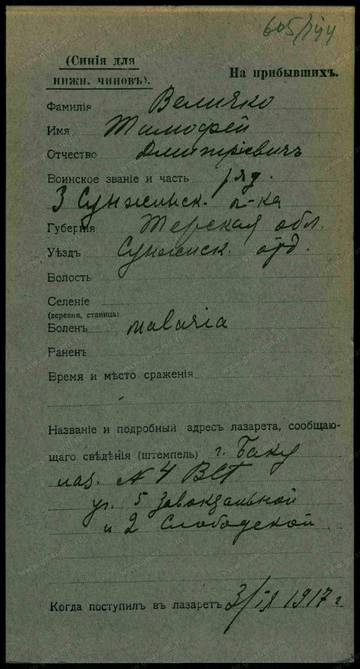 605/144
(Синія для
нижн. чиновъ).
На прибывшихъ.
Фамилія Величко
Имя Тимофей
Отчество Дмитріевичъ
Воинское званіе и часть ряд.
3 Сунженск. п-ка
Губернія Терская обл.
Уѣздъ Сунженск. отд.
Волость
Селеніе
(деревня, станица)
Боленъ malaria
Раненъ
Время и мѣсто сраженія
Названіе и подробный адресъ лазарета, сообщаю-
щаго свѣдѣнія (штемпель) г. Баку
лаз. N 4 ВСГ
уг. 5 Завокзальной
и 2 Слободской
Когда поступилъ въ лазаретъ 3/IX 1917 г.